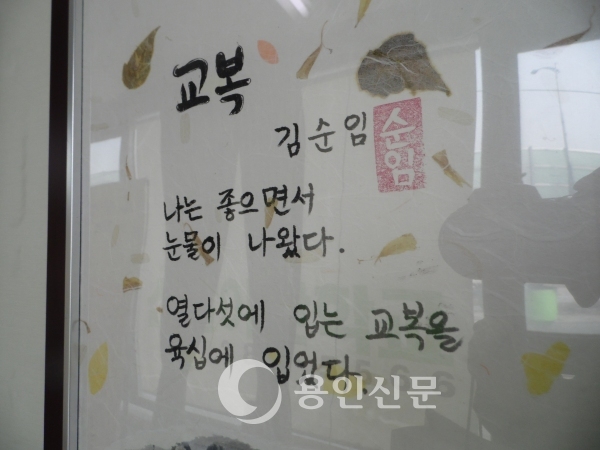 교복
김순임 순임
나는 좋으면서
눈물이 나왔다.
열다섯에 입는 교복을
육십에 입었다.
용인신문